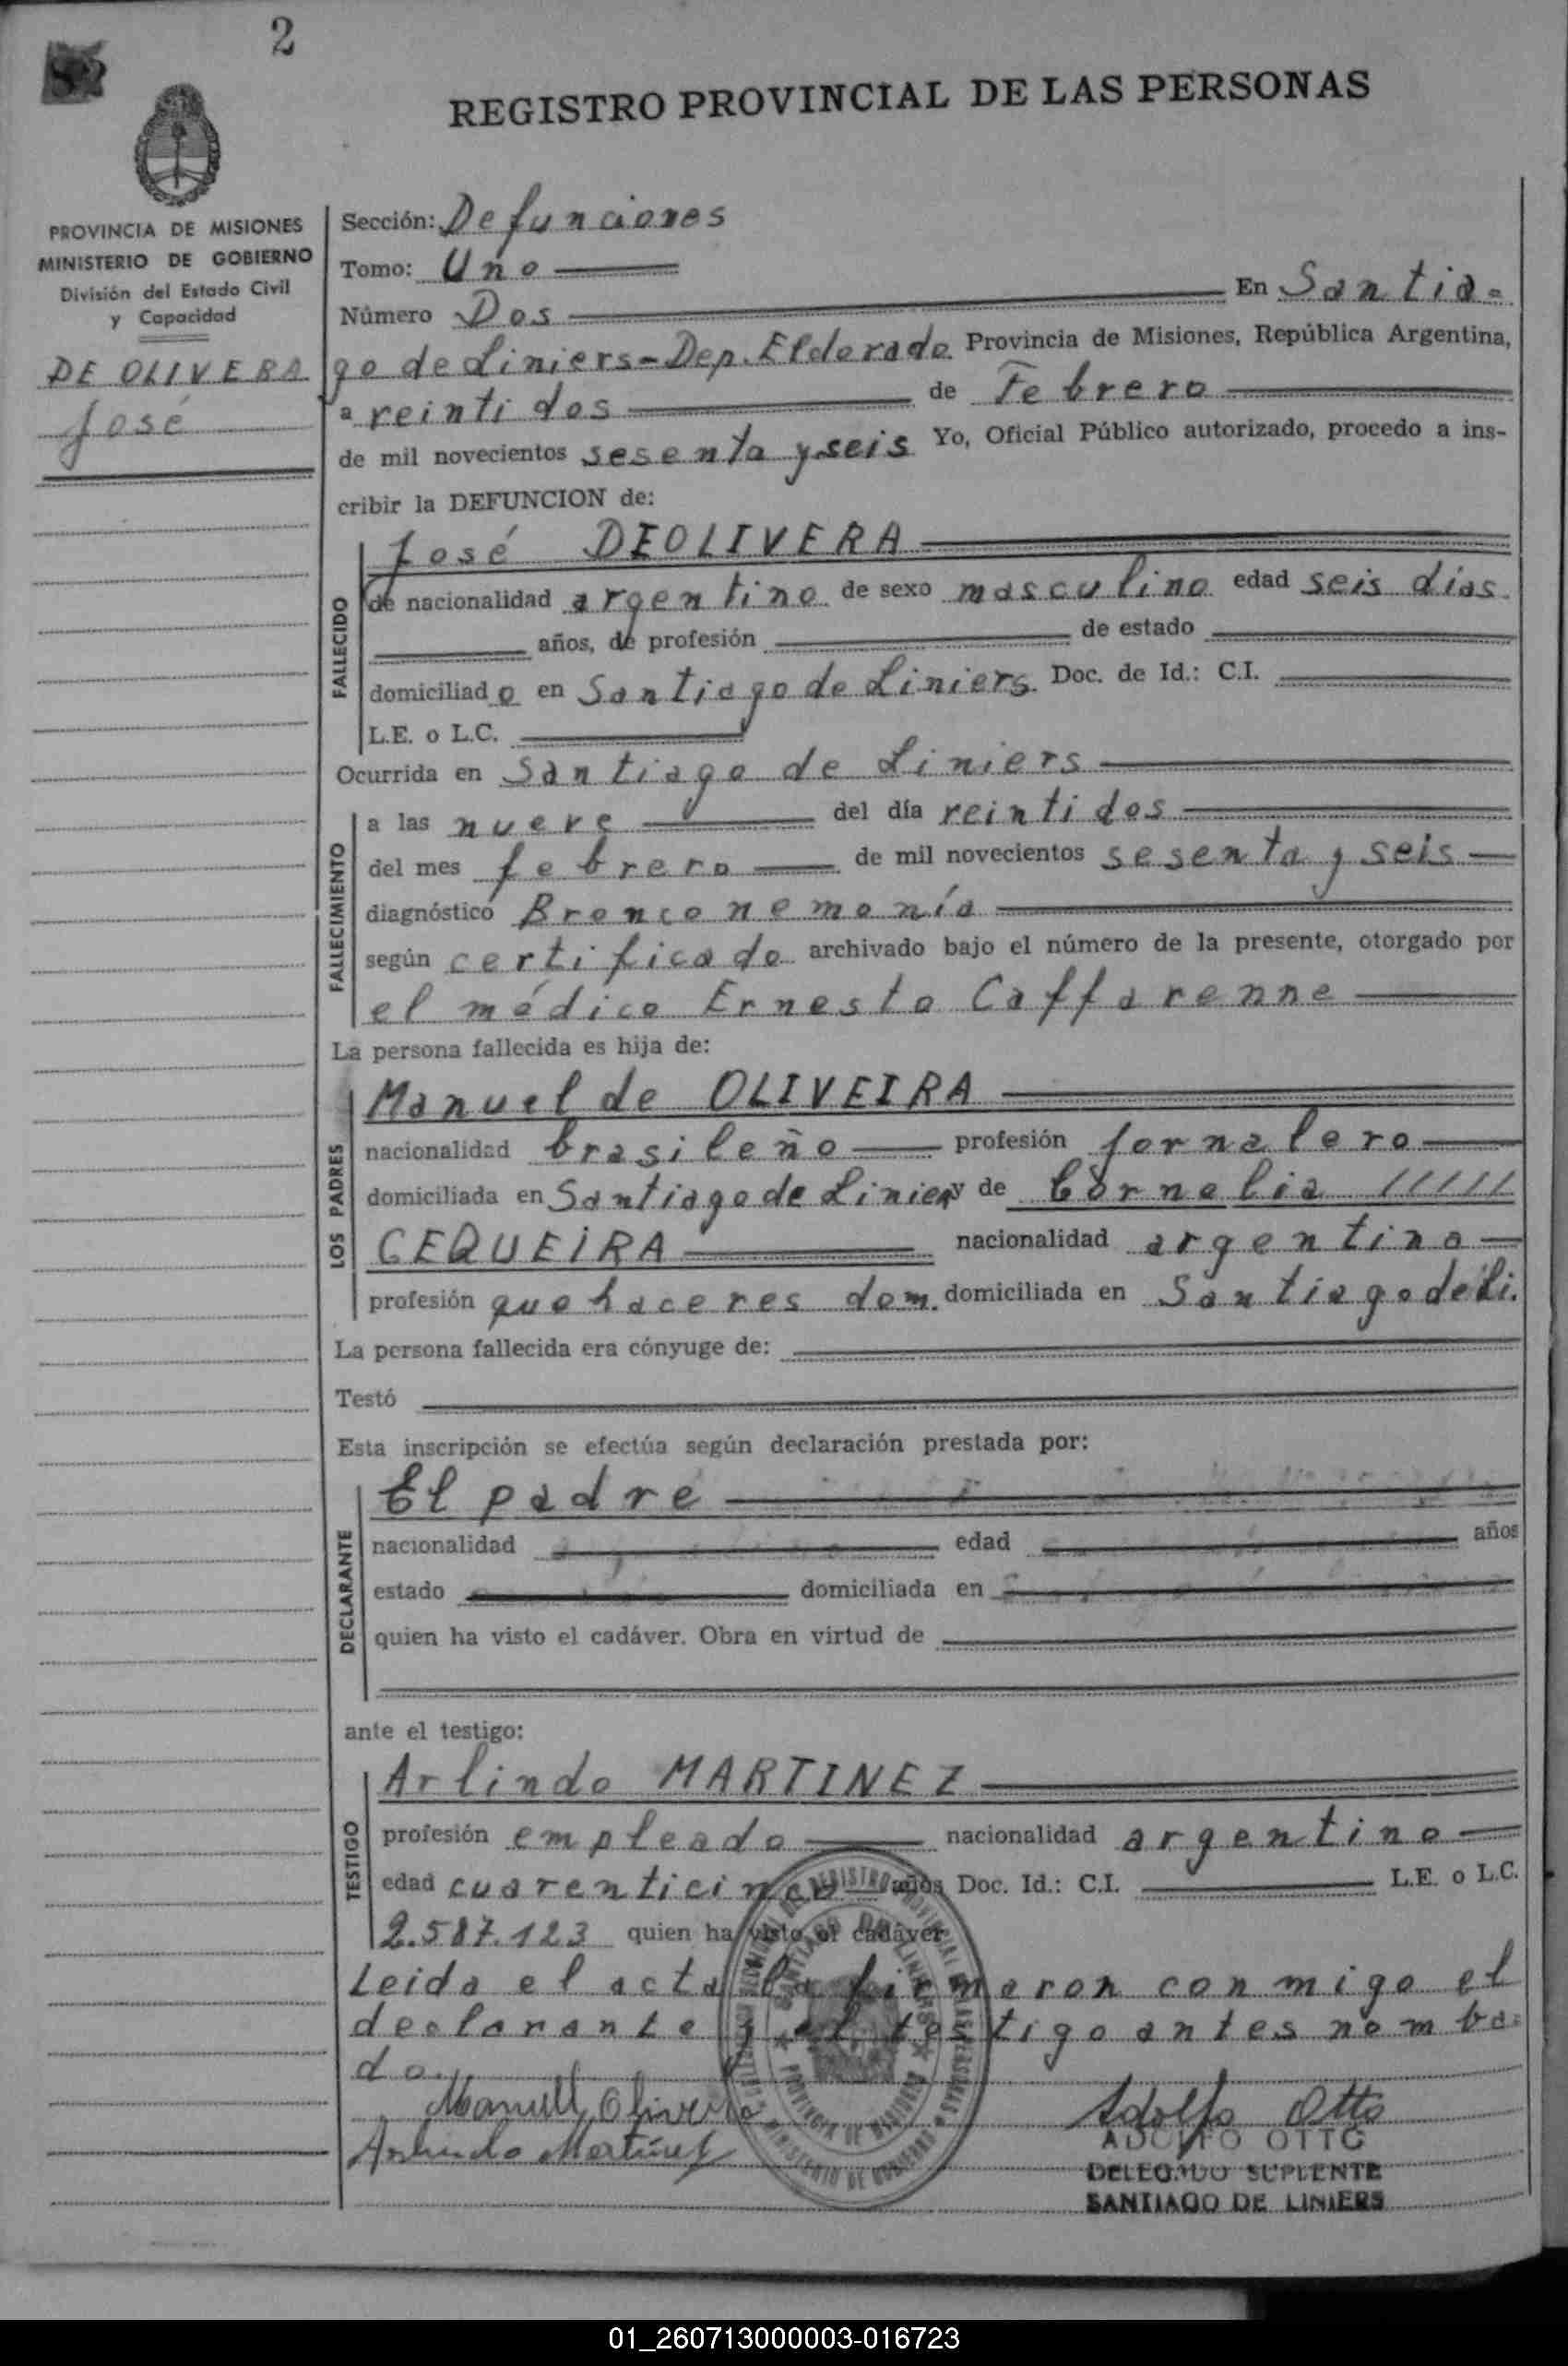 2
REGISTRO PROVINCIAL DE LAS PERSONAS
PROVINCIA DE MISIONES
MINISTERIO DE GOBIERNO
División del Estado Civil
y Capacidad
DE OLIVERA
José
Sección: Defunciones
Tomo: Uno
Número Dos En Santia-
go de Liniers-Dep. Eldorado. Provincia de Misiones, República Argentina,
a veintidos de Febrero
de mil novecientos sesenta y seis Yo, Oficial Público autorizado, procedo a ins-
cribir la DEFUNCION de:
FALLECIDO
José DEOLIVERA
de nacionalidad argentino de sexo masculino edad seis días
años, de profesión de estado
domiciliado en Santiago de Liniers Doc. de Id.: C.I.
L.E. o L.C.
Ocurrida en Santiago de Liniers
FALLECIMIENTO
a las nueve del día veintidos
del mes febrero de mil novecientos sesenta y seis
diagnóstico Bronconemonía
según certificado archivado bajo el número de la presente, otorgado por
el médico Ernesto Caffarenne
La persona fallecida es hija de:
LOS PADRES
Manuel de OLIVEIRA
nacionalidad brasileño profesión jornalero
domiciliada en Santiago de Liniers y de Cornelia //////
CEQUEIRA nacionalidad argentina
profesión quehaceres dom. domiciliada en Santiago de Li.
La persona fallecida era cónyuge de:
Testó
Esta inscripción se efectúa según declaración prestada por:
DECLARANTE
El padre
nacionalidad edad años
estado domiciliada en
quien ha visto el cadáver. Obra en virtud de
ante el testigo:
TESTIGO
Arlindo MARTINEZ
profesión empleado nacionalidad argentino
edad cuarenticinco años Doc. Id.: C.I. L.E. o L.C.
2.587.123 quien ha visto el cadáver
Leida el acta la firmaron conmigo el
declarante y el testigo antes nomba-
do.
Manuel Oliveira
Arlindo Martinez
Adolfo Otto
ADOLFO OTTO
DELEGADO SUPLENTE
SANTIAGO DE LINIERS
01_260713000003-016723